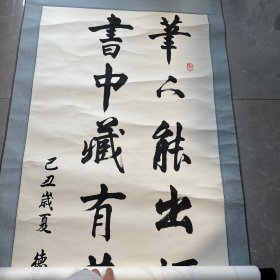 筆下能出
書中藏有
己丑歲夏 德